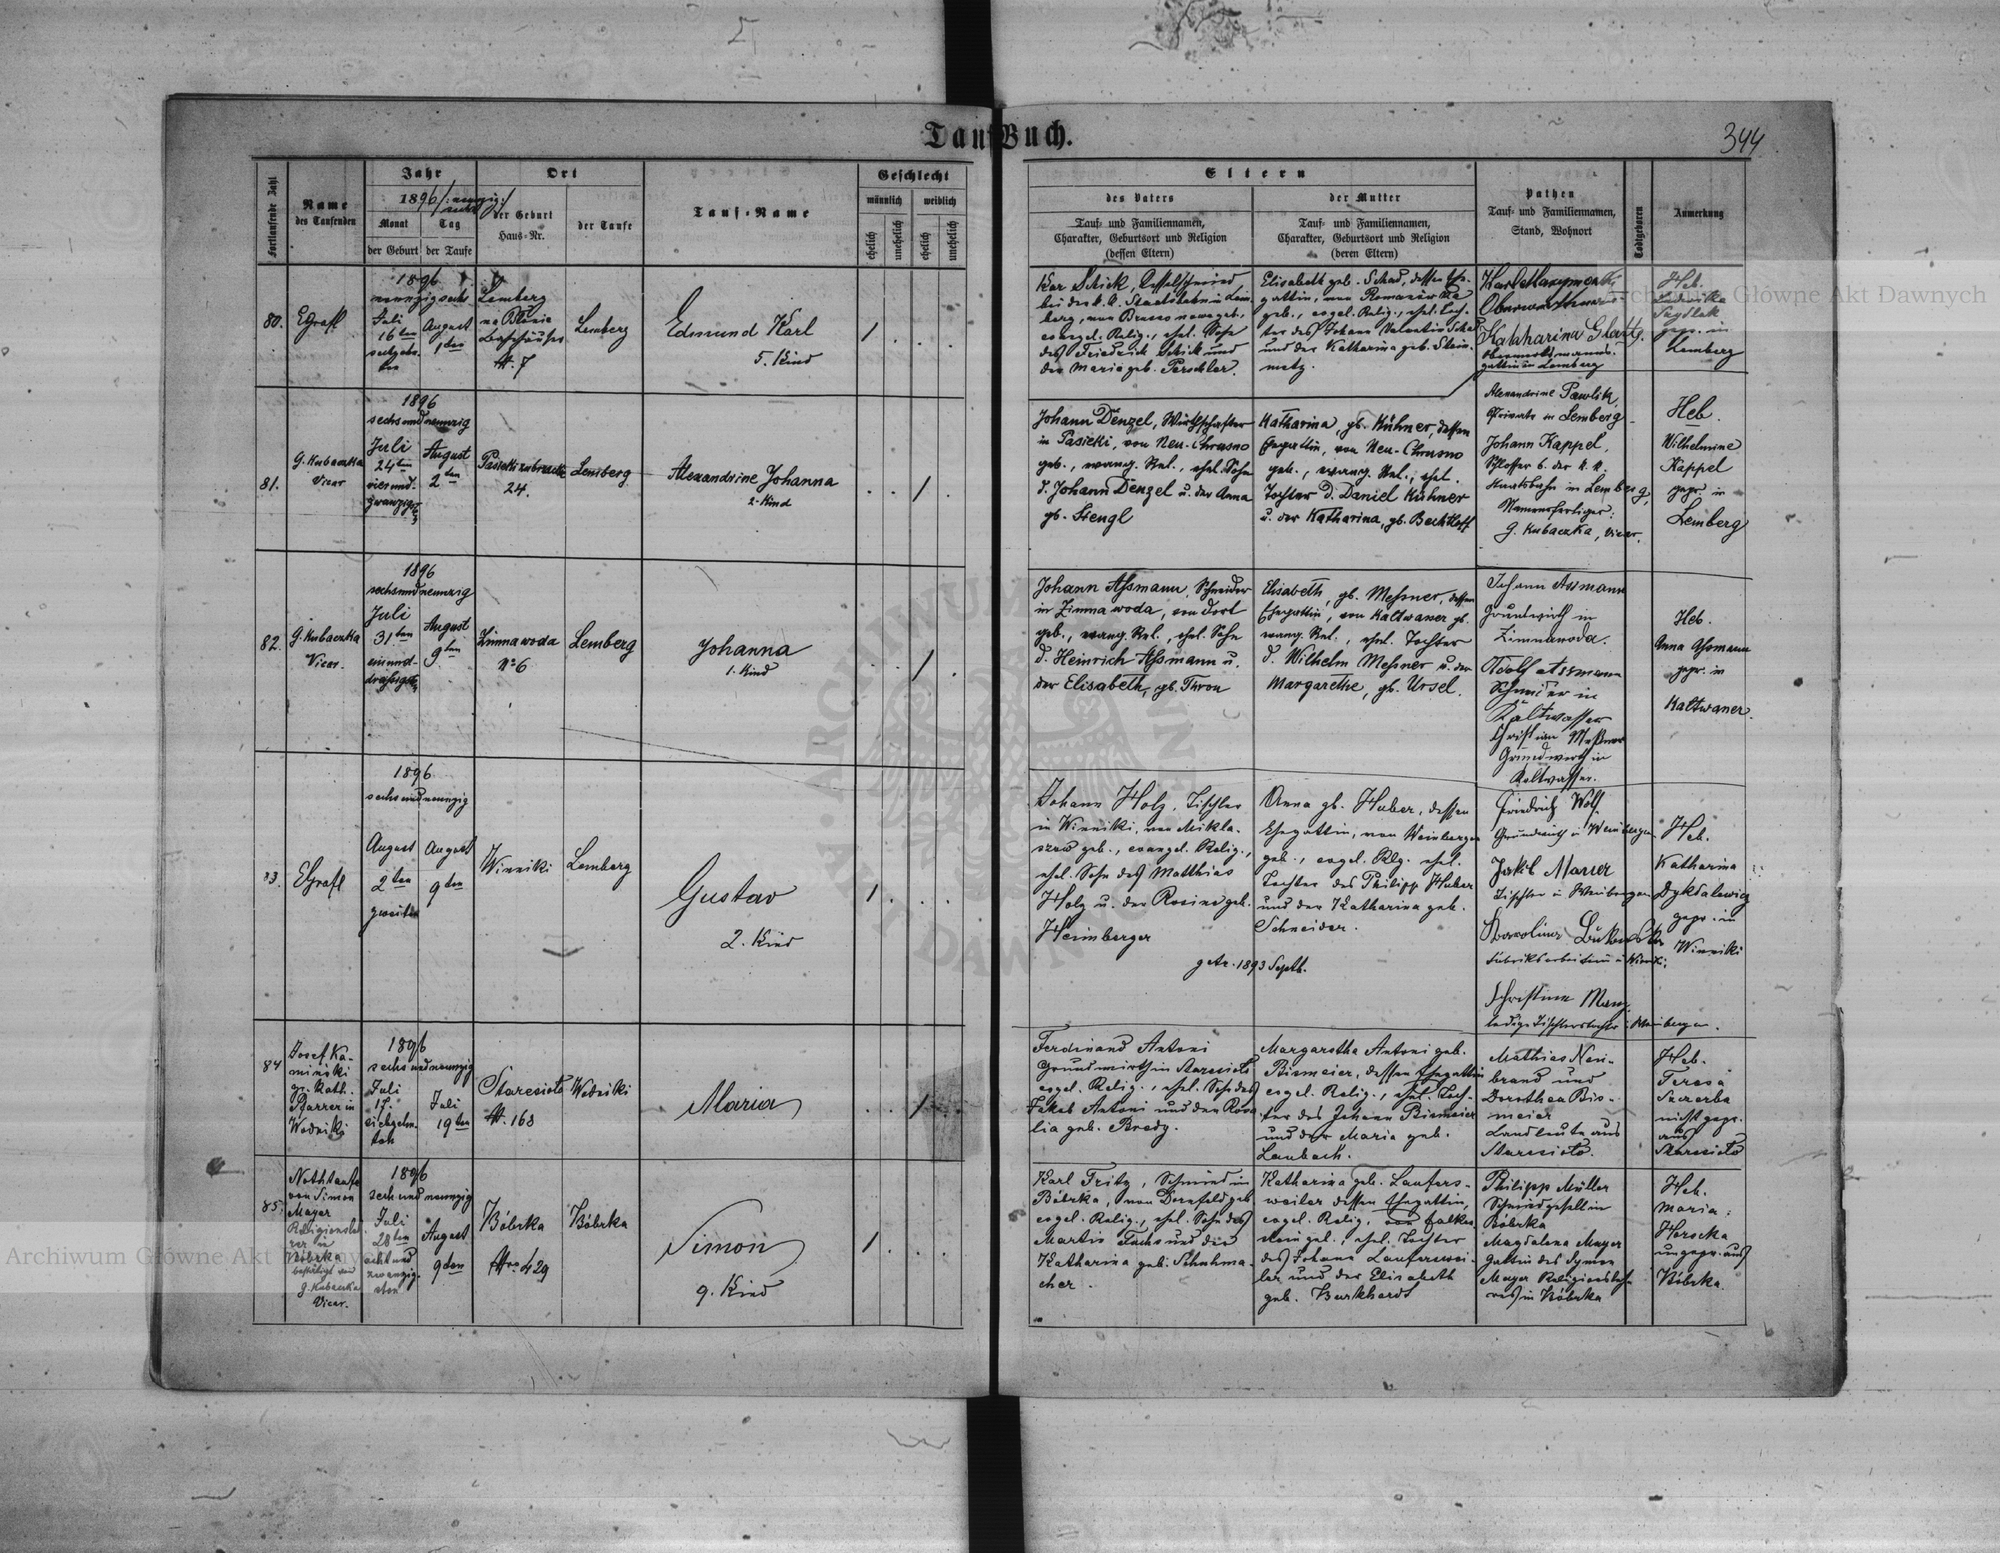 Tauf Buch.
344
Fortlaufende Zahl
Name
des Taufenden
Jahr
1896
Monat
Tag
der Geburt
der Taufe
Ort
der Geburt
Haus-Nr.
der Taufe
Tauf-Name
Geschlecht
männlich
weiblich
ehelich
unehelich
ehelich
unehelich
Eltern
des Vaters
Tauf- und Familiennamen,
Charakter, Geburtsort und Religion
(dessen Eltern)
der Mutter
Tauf- und Familiennamen,
Charakter, Geburtsort und Religion
(deren Eltern)
Pathen
Tauf- und Familiennamen,
Stand, Wohnort
Todtgeboren
Anmerkung
80.
1896
neunzigsechs
Juli
16ten
August
1ten
Lemberg
№ 7
Lemberg
Edmund Karl
5. Kind
1
Schick, Kesselschmied
bei der k. k. Staatsbahn in Lem-
berg, von
evangel. Relig., ehel. Sohn
des Friedrich Schick und
der Maria geb. Perschler.
Elisabeth geb. Schad, dessen Ehe-
gattin, von
geb., evgel. Relig., ehel. Toch-
ter des Johann Valentin Schad
und der Katharina geb. Stein-
metz.
Katharina Glatz
gattin in Lemberg
Heb.
Ludwika
gepr. in
Lemberg
81.
G. Kubaczka
Vicar
1896
sechsundneunzig
Juli
24ten
vierund-
zwanzigst
August
2ten
Pasieki
24.
Lemberg
Alexandrine Johanna
2. Kind
1
Johann Denzel, Wirthschafter
in Pasieki, von Neu-Chrusno
geb., evang. Rel., ehel. Sohn
d. Johann Denzel u. der Anna
gb. Stengl
Katharina, gb. Kühner, dessen
Ehegattin, von Neu-Chrusno
geb., evang. Rel., ehel.
Tochter d. Daniel Kühner
u. der Katharina, gb. Bechtloff
Alexandrine Pawlik,
Private in Lemberg
Johann Kappel,
Schlosser b. der k. k.
Staatsbahn in Lemberg,
Namensfertiger:
G. Kubaczka, Vicar.
Heb.
Wilhelmine
Kappel
gepr. in
Lemberg
82.
G. Kubaczka
Vicar.
1896
sechsundneunzig
Juli
31.ten
einund-
dreißigst
August
9ten
Zimnawoda
№ 6
Lemberg
Johanna
1. Kind
1
Johann Aßmann, Schneider
in Zimnawoda, von dort
geb., evang. Rel., ehel. Sohn
d. Heinrich Aßmann u.
der Elisabeth, gb. Thron
Elisabeth, gb. Meßner, dessen
Ehegattin, von Kaltwasser gb.
evang. Rel., ehel. Tochter
d. Wilhelm Meßner u. der
Margarethe, gb. Ursel.
Johann Assmann
Grundwirth in
Zimnawoda.
Adolf Assmann
Schneider in
Kaltwasser
Christian Meßner
Grundwirth in
Kaltwasser.
Heb.
Anna Aßmann
gepr. in
Kaltwasser.
83.
EGrafl
1896
sechsundneunzig
August
2ten
zweiten
August
9ten
Winniki
Lemberg
Gustav
2. Kind
1
Johann Holz, Tischler
in Winniki, von Mikla-
szow geb., evangel. Relig.,
ehel. Sohn des Matthias
Holz u. der Rosina geb.
Heimberger
getr. 1893 Septb.
Anna gb. Huber, dessen
Ehegattin, von Weinbergen
geb., evgel. Rlg. ehel.
Tochter des Philipp Huber
und der Katharina geb.
Schneider.
Friedrich Wolf
Grundwirth in Weinbergen
Jakob Maner
Tischler in Weinbergen
Karolina
Fabriksarbeiterin in Winniki
Christina Manz
ledige Tischlerstochter in Weinbergen.
Heb.
Katharina
Dykdalewicz
gepr. in
Winniki
84
Josef Ka-
miński
gr. Kath.
Pfarrer in
Wodniki
1896
sechsundneunzig
Juli
17.
siebzehn-
ten
Juli
19ten
Staresioło
№ 168
Wodniki
Maria
1
Ferdinand Antoni
Grundwirth in Staresioło
evgel. Relig., ehel. Sohn des
Jakob Antoni und der Rosa-
lia geb. Bredy.
Margaretha Antoni geb.
Bismeier, dessen Ehegattin
evgel. Relig., ehel. Toch-
ter des Johann Bismeier
und der Maria geb.
Laubach.
Mathias Neu-
brand und
Dorothea Bis-
meier
Landleute aus
Staresioło.
Heb.
Teresa
Szczerba
nicht gepr.
aus
Staresioło
85.
Nothtaufe
von Simon
Mayer
Religionsleh-
rer in
Bóbrka
bestätigt von
G. Kubaczka
Vicar.
1896
sechsundneunzig
Juli
28ten
achtund
zwanzig-
sten
August
9ten
Bóbrka
№ 429
Bóbrka
Simon
9. Kind
1
Karl Fritz, Schmied in
Bóbrka, von Dornfeld geb.
evgel. Relig., ehel. Sohn des
Martin Fuchs und der
Katharina geb. Schuhma-
cher.
Katharina geb. Laufers-
weiler dessen Ehegattin,
evgel. Relig. von Falken-
stein geb., ehel. Tochter
des Johann Lauferswei-
ler und der Elisabeth
geb. Burkhardt
Philipp Müller
Schmiedgesell in
Bóbrka
Magdalena Mayer
Gattin des Symon
Mayer Religionsleh-
rers in Bóbrka
Heb.
Maria
Horscka
ungepr. aus
Bóbrka.
Archiwum Główne Akt Dawnych
Archiwum Główne Akt Dawnych